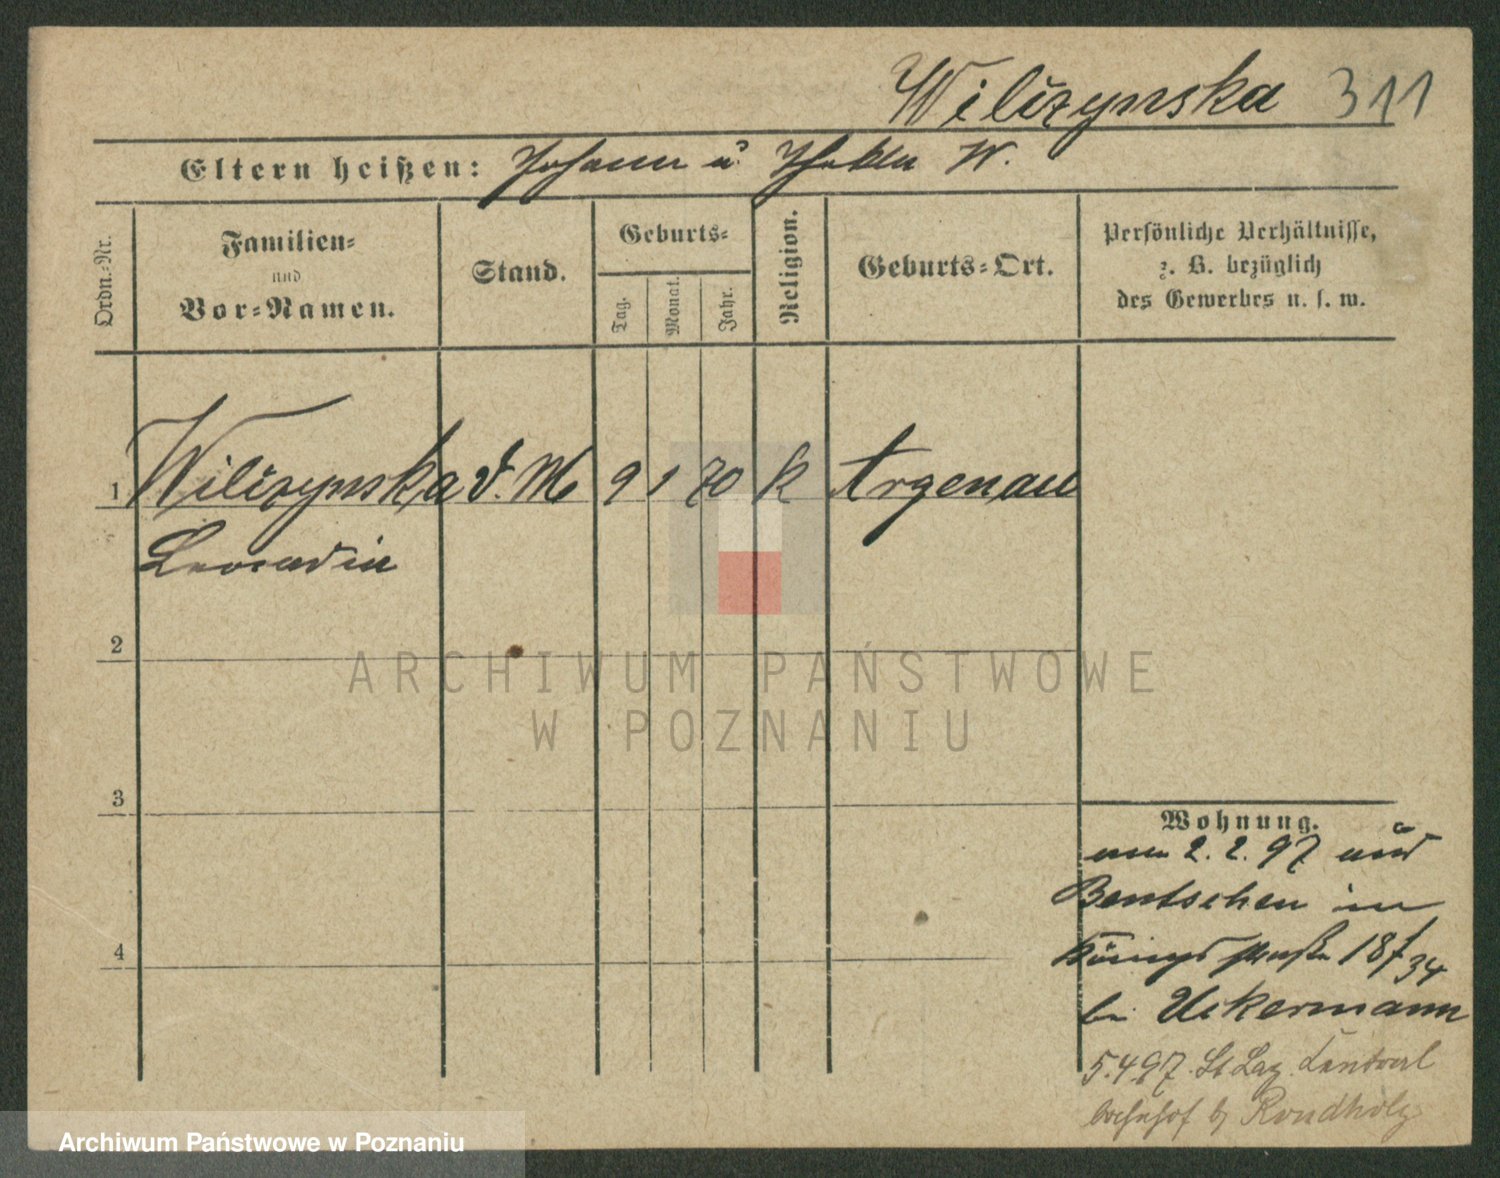 Wilizynska 311
Eltern heißen: Johann u Thekla W.
Ordn.-Nr.
Familien-
und
Vor-Namen.
Stand.
Geburts-
Tag.
Monat.
Jahr.
Religion.
Geburts-Ort.
Persönliche Verhältnisse,
z. B. bezüglich
des Gewerbes u. s. w.
1 Wilizynska d. M 9 1 70 k Argenau
Leocadia
2
3
4
Wohnung.
2. 2. 97 aus
Bentschen in
Königsstraße 18/34
bei Uckermann
5.4 97. St Laz. Central
bahnhof b Rondholz
ARCHIWUM PAŃSTWOWE
W POZNANIU
Archiwum Państwowe w Poznaniu